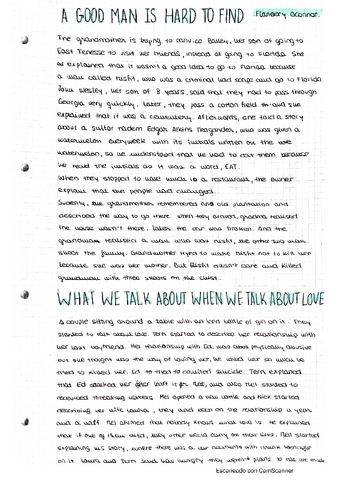 A GOOD MAN IS HARD TO FIND Flannery oconnor.
The grandmother is trying to convice Bailey, her son of going to
East Tenesse to visit her friends, instead of going to Florida. She
explained that it wasn't a good idea to go to Florida because
a man called misfit, who was a criminal had scape and go to Florida
John Wesley, her son of 8 years, said that they had to pass through
Georgia very quickly. Later, they pass a cotton field and she
explained that it was a cementery. Afterwards, one told a story
about a suitor named Edgar Atkins Teagarden, who was given a
watermelon everyweek with its initials written on the
watermelon, so he understood that he had to eat them because
he read the initials as it was a word, EAT.
When they stopped to have lunch in a restaurant, the owner
explain that the people had changed.
Suddenly, the grandmother remembered and old plantation and
described the way to go there. When they arrived, grandma realised
the house wasn't there. Later the car was broken. And the
grandmum realised a man who was misfit, the other two men
shoot the family. Grandmother tryed to make Misfit not to kill her
because she was her mother. But Misfit doesn't care and killed
grandmum with three shoots on the chest.
WHAT WE TALK ABOUT WHEN WE TALK ABOUT LOVE
A couple sitting around a table with an bottle of gin on it. They
started to talk about love. Terri started to describe her relationship with
her last boyfriend. Her relationship with Ed, was physically abusive
but she thought was the way of loving her, he loved her so much he
tried to killed her. Ed to tried to commited suicide. Terri explained
that Ed after left it for Mel, and also Mel started to
received threaking letters. Mel opened a new bottle and Nick started
describing her wife Laura, they had been on the relationship a year
and a half. Mel afirmed that nobody knows what love is. He explained
that if one of them died, the other would carry on their lives. Mell started
explaining his story, where there was a car accident with drunk teenager
on it. Laura and Terri said was hungry they weren't plans to eat
Escaneado con CamScanner